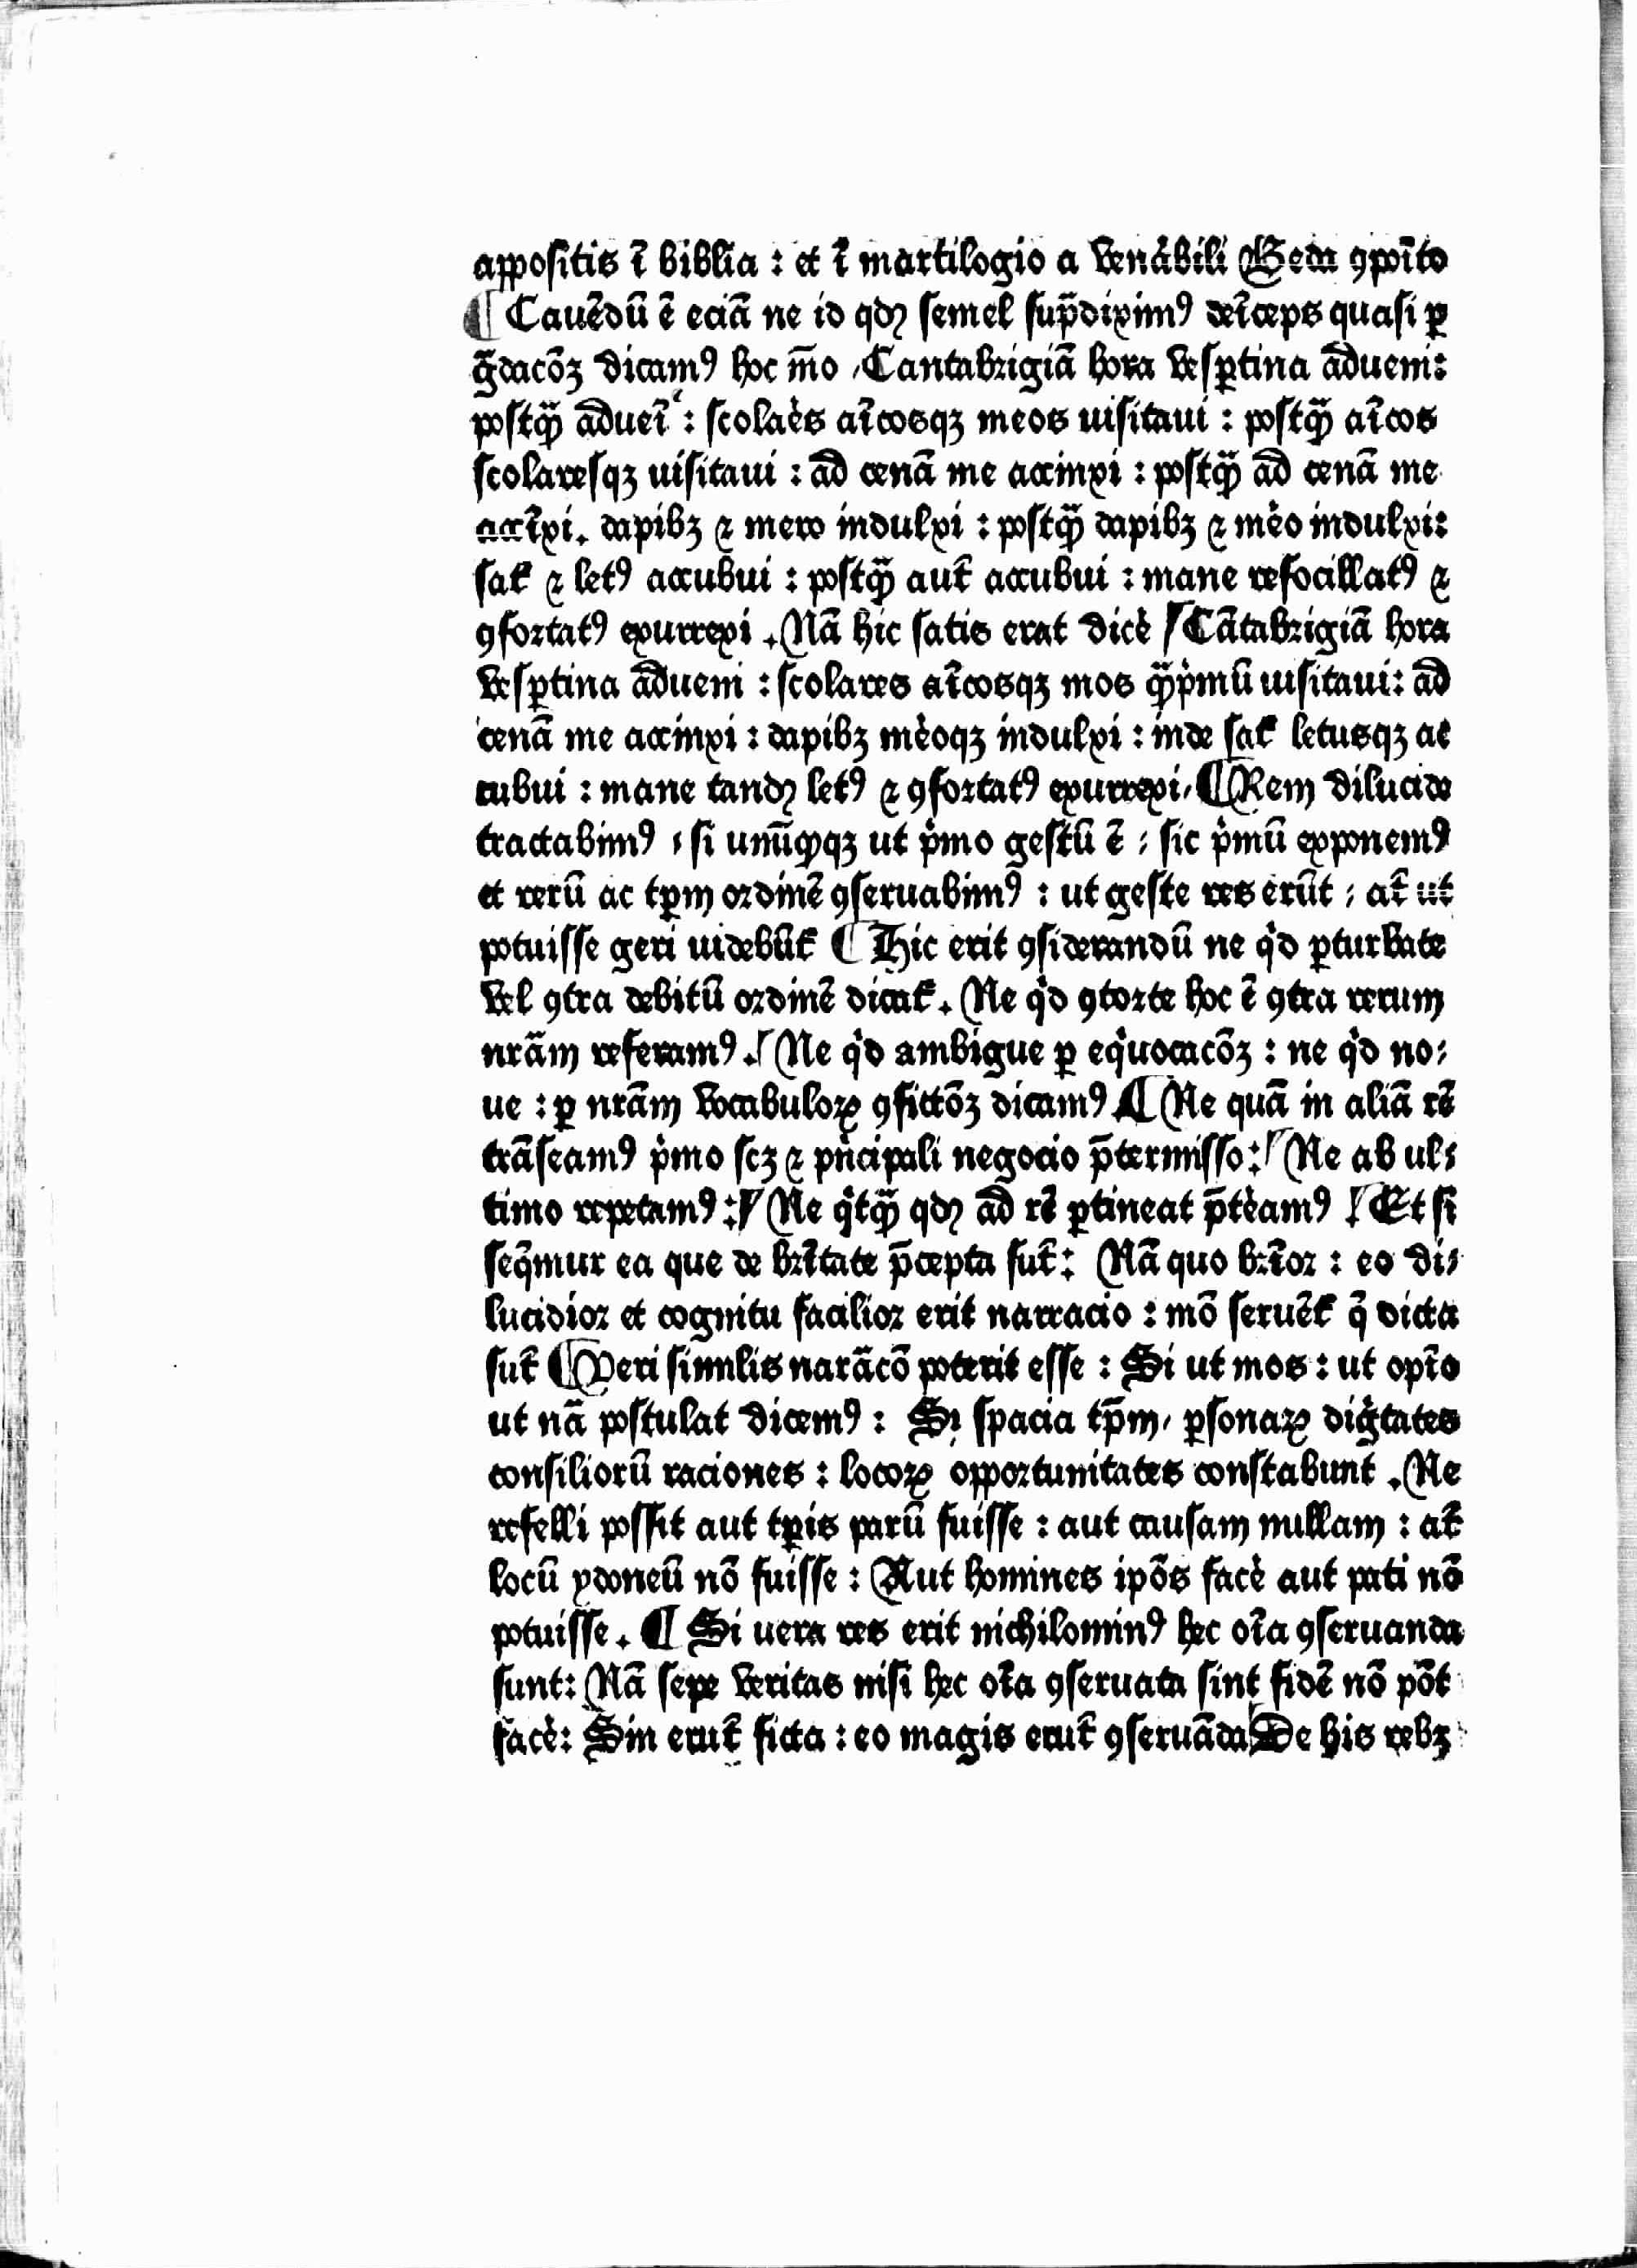 appositis ī biblia : et ī martilogio a venābili Beda ꝯpoīto
¶ Cauēdū ē eciā ne id qdꝫ semel sup̄diximꝰ deīceps quasi ꝑ
g̃dacōꝫ dicamꝰ hoc m̄o / Cantabrigiā hora vesꝑtina adueni:
postq̄ꝫ adueī : scolaēs aīcosqꝫ meos uisitaui : postq̄ꝫ aīcos
scolaresqꝫ uisitaui : ad cenā me accinxi : postq̄ꝫ ad cenā me
accīxi . dapibꝫ ⁊ mero indulxi : postq̄ꝫ dapibꝫ ⁊ mēo indulxi:
sat̄ ⁊ letꝰ accubui : postq̄ꝫ aut̄ accubui : mane refocillatꝰ ⁊
ꝯfortatꝰ expurrexi . Nā hic satis erat dicē / Cātabrigiā hora
vesꝑtina adueni : scolares aīcosqꝫ mos q̄ꝫp̄mū uisitaui: ad
cenā me accinxi : dapibꝫ mēoqꝫ indulxi : inde sat̄ letusqꝫ ac
cubui : mane tandꝫ letꝰ ⁊ ꝯfortatꝰ expurrexi / ¶ Rem dilucide
tractabimꝰ / si unūq̄qꝫ ut p̄mo gestū ē / sic p̄mū exponemꝰ
et rerū ac tꝑm ordinē ꝯseruabimꝰ : ut geste res erūt / at̄ ut
potuisse geri uidebūt̄ ¶ Hic erit ꝯsiderandū ne q̇d ꝑturbate
vel ꝯtra debitū ordinē dicat̄ . Ne q̇d ꝯtorte hoc ē ꝯtra rerum
nrām referamꝰ . / Ne q̇d ambigue ꝑ eq̇uocacōꝫ : ne q̇d no/
ue : ꝑ nrām vocabuloꝝ ꝯfictōꝫ dicamꝰ ¶ Ne quā in aliā rē
trāseamꝰ p̄mo scꝫ ⁊ pn̄cipali negocio p̄termisso: / Ne ab ul/
timo repetamꝰ : / Ne q̇tq̄ꝫ qdꝫ ad rē ꝑtineat p̄tēamꝰ / Et si
seq̄mur ea que de br̄itate p̄cepta sut̄ : Nā quo br̄ior : eo di/
lucidior et cognitu facilior erit narracio : mō seruēt̄ q̄ dicta
sut̄ ¶ Veri similis narācō poterit esse : Si ut mos : ut opīo
ut nā postulat dicemꝰ : Si spacia tp̄m / ꝑsonaꝝ dig̃tates
consiliorū raciones : locoꝝ opportunitates constabunt . Ne
refelli possit aut tꝑis parū fuisse : aut causam nullam : at̄
locū ydoneū nō fuisse : Aut homines ipōs facē aut pati nō
potuisse . ¶ Si uera res erit nichilominꝰ hec oīa ꝯseruanda
sunt: Nā sepe veritas nisi hec oīa ꝯseruata sint fidē nō pōt
facē: Sin erut̄ ficta : eo magis erut̄ ꝯseruāda / De his rebꝫ